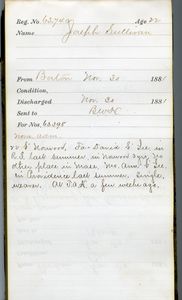 Reg. No. 63749 Age 22
Name Joseph Sullivan
From Boston Nov. 30 1881
Condition,
Discharged Nov. 30 1881
Sent to
For No. 63395
22 S. Norwood. Fa. David S. Lee in
R.I. last summer in Norwood No
other place in Mass. Mo. Ann S. Lee
in Providence last summer, single,
weaver. At a few weeks ago.